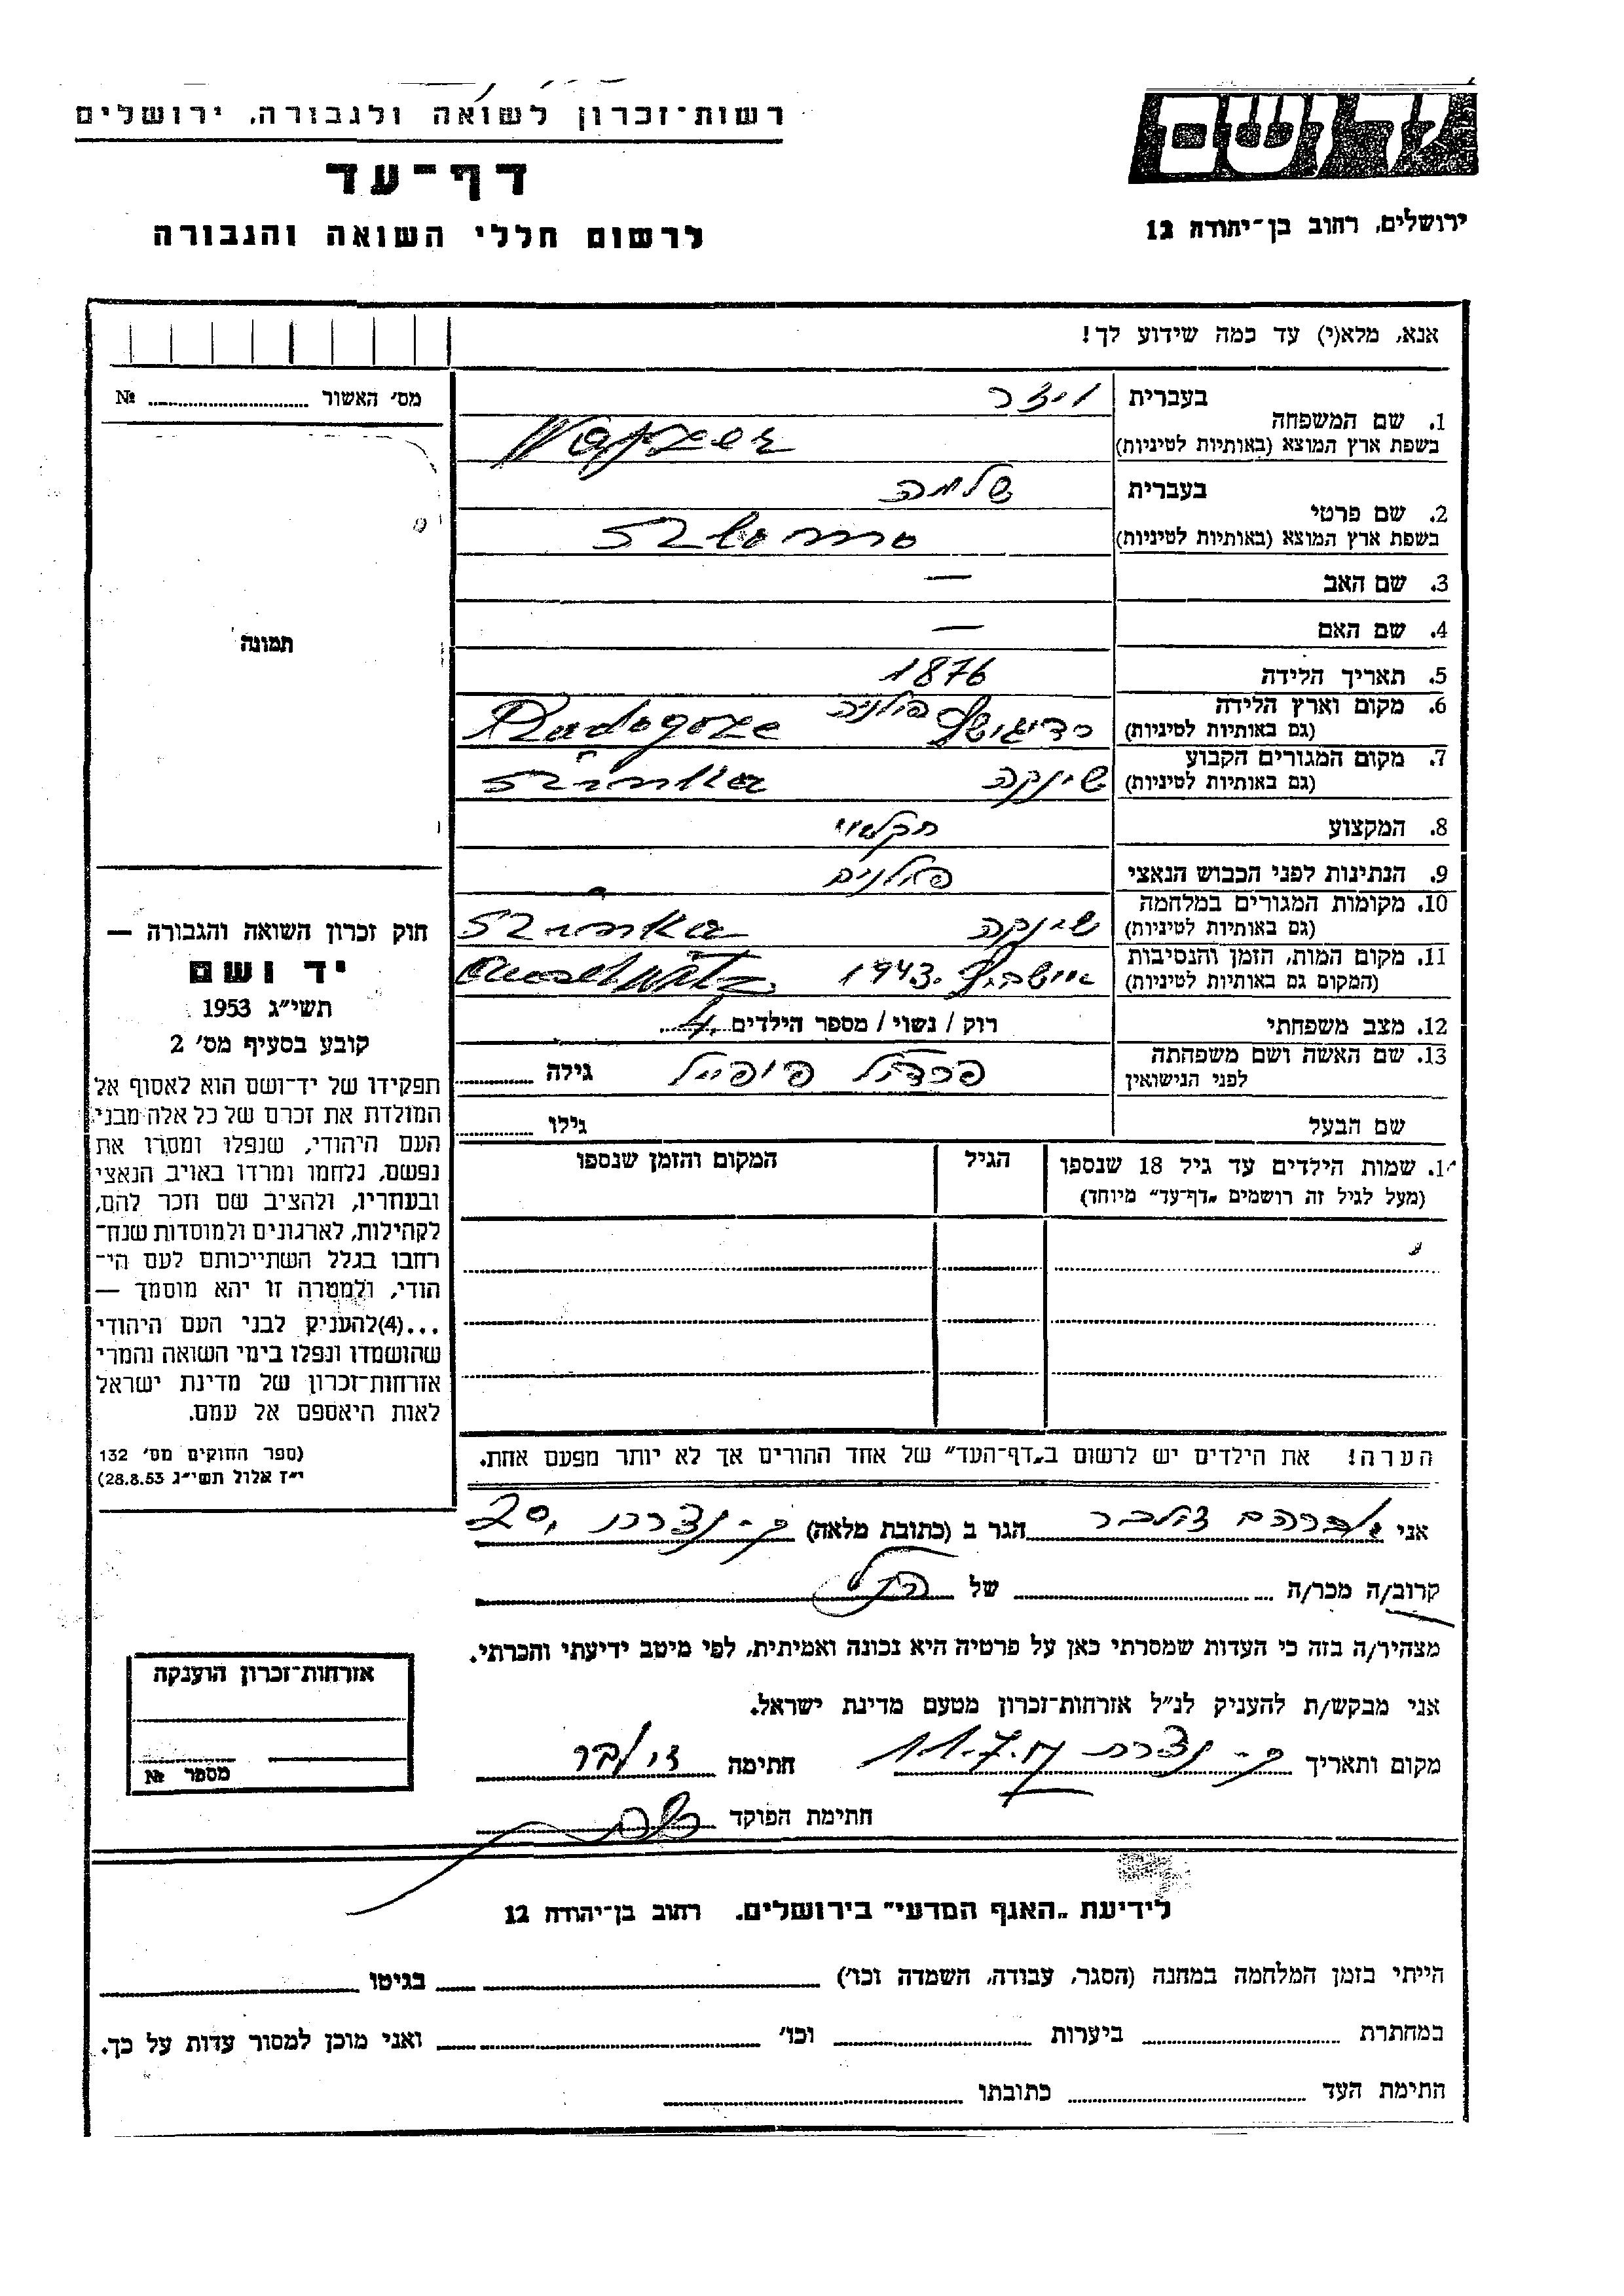 רשות־זכרון לשואה ולגבורה, ירושלים
דף־עד
לרשום חללי השואה והגבורה
ידושם
ירושלים, רחוב בן־יהודה 12
אנא, מלא(י) עד כמה שידוע לך!
מס׳ האשור № 
1. שם המשפחה בעברית
בשפת ארץ המוצא (באותיות לטיניות)
שלמה
2. שם פרטי בעברית
בשפת ארץ המוצא (באותיות לטיניות) Szlomo
3. שם האב —
4. שם האם —
5. תאריך הלידה 1876
6. מקום וארץ הלידה פולניה
(גם באותיות לטיניות)
7. מקום המגורים הקבוע שינקה
(גם באותיות לטיניות)
8. המקצוע חקלאי
9. הנתינות לפני הכבוש הנאצי
10. מקומות המגורים במלחמה שינקה
(גם באותיות לטיניות)
11. מקום המות, הזמן והנסיבות 1943.
(המקום גם באותיות לטיניות)
12. מצב משפחתי רוק / נשוי / מספר הילדים 4
13. שם האשה ושם משפחתה גילה
לפני הנישואין
שם הבעל גילו
14. שמות הילדים עד גיל 18 שנספו הגיל המקום והזמן שנספו
(מעל לגיל זה רושמים „דף־עד״ מיוחד)
הערה! את הילדים יש לרשום ב„דף־העד״ של אחד ההורים אך לא יותר מפעם אחת.
תמונה
חוק זכרון השואה והגבורה —
יד ושם
תשי״ג 1953
קובע בסעיף מס׳ 2
תפקידו של יד־ושם הוא לאסוף אל
המולדת את זכרם של כל אלה מבני
העם היהודי, שנפלו ומסרו את
נפשם, נלחמו ומרדו באויב הנאצי
ובעוזריו, ולהציב שם וזכר להם,
לקהילות, לארגונים ולמוסדות שנח־
רחבו בגלל השתייכותם לעם הי־
הודי, ולמטרה זו יהא מוסמך —
...(4)להעניק לבני העם היהודי
שהושמדו ונפלו בימי השואה והמרי
אזרחות־זכרון של מדינת ישראל
לאות היאספם אל עמם.
(ספר החוקים מס׳ 132
י״ז אלול תשי״ג 28.8.53)
אני אברהם הגר ב (כתובת מלאה)
קרוב/ה מכר/ה של
מצהיר/ה בזה כי העדות שמסרתי כאן על פרטיה היא נכונה ואמיתית, לפי מיטב ידיעתי והכרתי.
אני מבקש/ת להעניק לנ״ל אזרחות־זכרון מטעם מדינת ישראל.
מקום ותאריך חתימה
חתימת הפוקד
אזרחות־זכרון הוענקה
מספר №
לידיעת „האגף המדעי״ בירושלים. רחוב בן־יהודה 12
הייתי בזמן המלחמה במחנה (הסגר, עבודה, השמדה וכו׳) בגיטו
במחתרת ביערות וכו׳ ואני מוכן למסור עדות על כך.
חתימת העד כתובתו